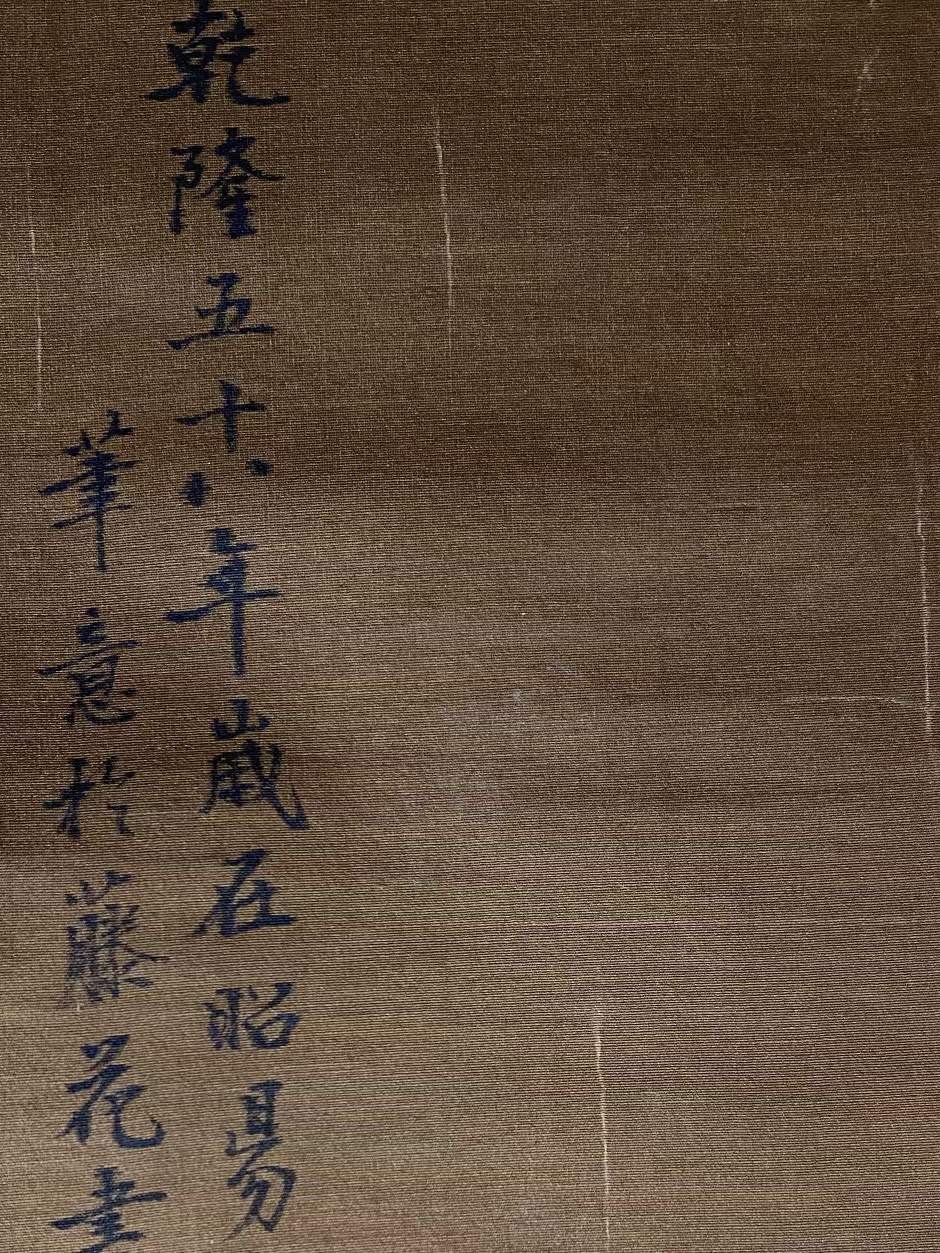 乾隆五十八年歲在昭昜
筆意於藤花